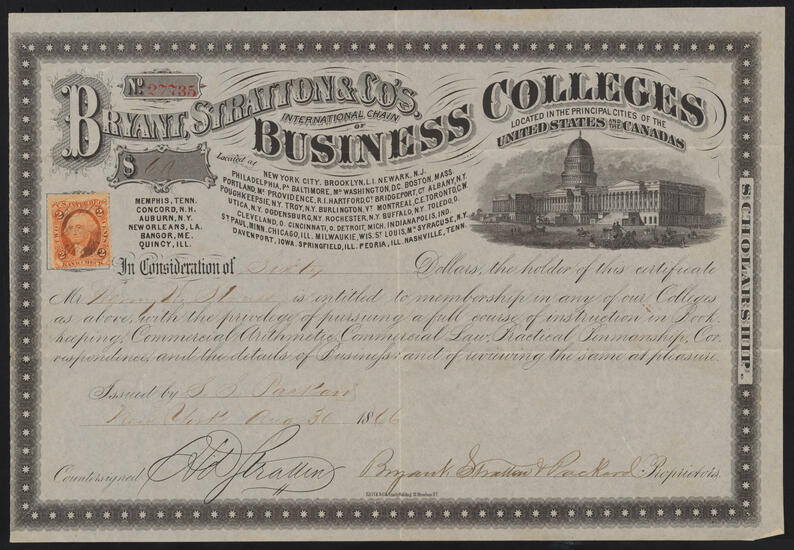 No. 27735
BRYANT, STRATTON & CO'S,
INTERNATIONAL CHAIN
OF
BUSINESS COLLEGES
LOCATED IN THE PRINCIPAL CITIES OF THE
UNITED STATES AND THE CANADAS
$ 60
Located at
NEW YORK CITY, BROOKLYN, L.I. NEWARK, N.J.
PHILADELPHIA, PA BALTIMORE, MD WASHINGTON, D.C. BOSTON, MASS.
PORTLAND, ME PROVIDENCE, R.I. HARTFORD, CT BRIDGEPORT, CT ALBANY, N.Y.
POUGHKEEPSIE, N.Y. TROY, N.Y. BURLINGTON, VT MONTREAL, C.E. TORONTO, C.W.
UTICA, N.Y. OGDENSBURG, N.Y. ROCHESTER, N.Y. BUFFALO, N.Y. TOLEDO, O.
CLEVELAND, O. CINCINNATI, O. DETROIT, MICH. INDIANAPOLIS, IND.
ST PAUL, MINN. CHICAGO, ILL. MILWAUKIE, WIS. ST LOUIS, MO SYRACUSE, N.Y.
DAVENPORT, IOWA. SPRINGFIELD, ILL. PEORIA, ILL. NASHVILLE, TENN.
MEMPHIS, TENN.
CONCORD, N.H.
AUBURN, N.Y.
NEW ORLEANS, LA.
BANGOR, ME.
QUINCY, ILL.
2 2
BANK CHECK
In Consideration of Sixty Dollars, the holder of this certificate
Mr is entitled to membership in any of our Colleges
as above, with the privilege of pursuing a full course of instruction in Book
keeping, Commercial Arithmetic, Commercial Law, Practical Penmanship, Cor
respondence, and the details of Business; and of reviewing the same at pleasure.
Issued by S. S. Packard
New York Aug 30 1866
Countersigned, H D Stratton
Bryant, Stratton & Packard Proprietors.
SCHOLARSHIP.